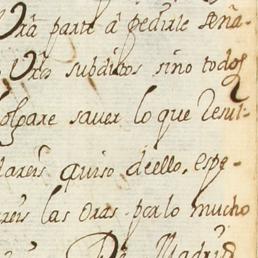 Vrã parte â pedirle seña-
Vrõs subditos sino todos
olgare saver lo que resul-
lareis quiso dello, espe-
reis las Oras por lo mucho
De Madrid